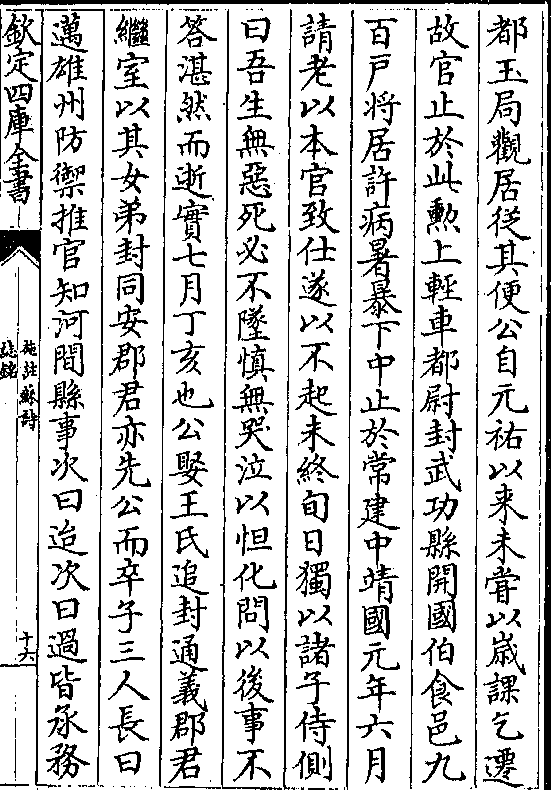 都玉局觀居從其便公自元祐以来未甞以嵗課乞遷
故官止於此勲上輕車都尉封武功縣開國伯食邑九
百戸将居許病暑暴下中止於常建中靖國元年六月
請老以本官致仕遂以不起未終旬日獨以諸子侍側
曰吾生無惡死必不墜慎無哭泣以怛化問以後事不
答湛然而逝實七月丁亥也公娶王氏追封通義郡君
繼室以其女弟封同安郡君亦先公而卒子三人長曰
邁雄州防禦推官知河間縣事次曰迨次曰過皆承務
欽定四庫全書
施註蘇詩
誌銘
十六